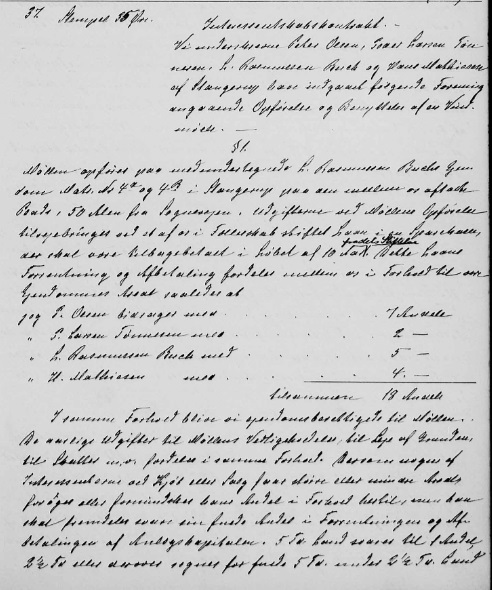 37. Stempel 55 Øre.
Interessentskabskontrakt. —
Vi undertegnede Peter Olsen, Lars Larsen Tøn-
nesen, L. Rasmussen Buch og Hans Mathiasen
af Slangerup have indgaaet følgende Forening
angaaende Opførelse og Benyttelse af en Vind-
mølle. —
§1.
Møllen opføres paa medundertegnede L. Rasmussen Buchs Ejen-
dom Matr. No 4a og 4b i Slangerup paa den mellem os aftalte
50 Alen fra Sognevejen. Udgifterne ved Møllens Opførelse
tilvejebringes ved et af os i Fællesskab stiftet Laan i en Sparekasse,
der skal være tilbagebetalt i Løbet af 10 Aar. Dette Laans
Forrentning og Afbetaling fordeles mellem os i Forhold til vore
Ejendommes Areal saaledes at
jeg P. Olsen bidrager med . . . . . 7 Andele
" L. Larsen Tønnesen med . . . . . 2 —
" L. Rasmussen Buch med . . . . . 5 —
" H. Mathiasen med . . . . . 4 —
tilsammen 18 Andele
I samme Forhold blive vi ejendomsberettigede til Møllen.
De aarlige Udgifter til Møllens Vedligeholdelse, til Leje af Grunden,
til Skatter m.v. fordeles i samme Forhold. Dersom nogen af
Interessenterne ved Kjøb eller Salg faar større eller mindre Areal
forøges eller formindskes hans Andel i Forhold hertil, men han
skal fremdeles svare sin fulde Andel i Forrentningen og Af-
betalingen af Anlægskapitalen. 5 Td. Land svarer til 1 Andel,
2½ Td eller derover regnes for fulde 5 Td. under 2½ Td. Land